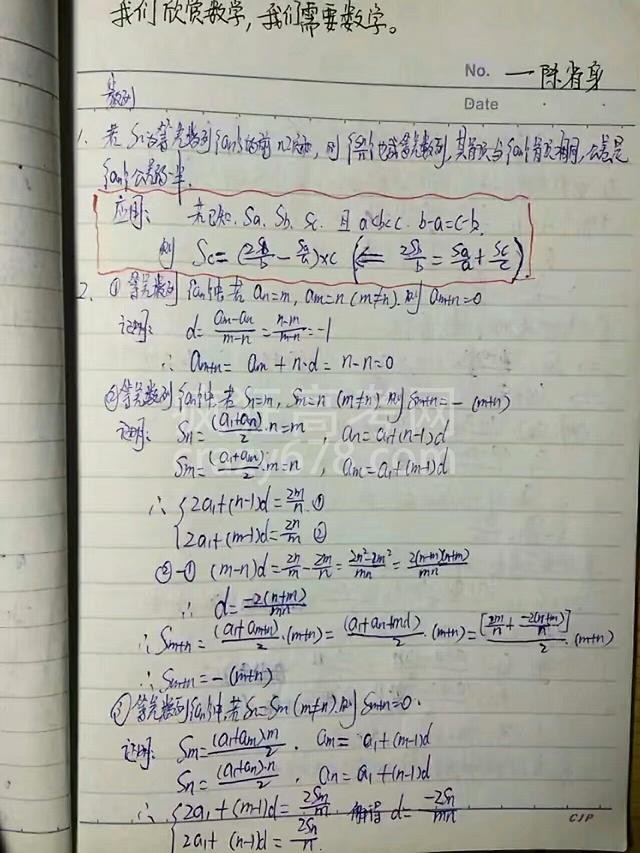 我们欣赏数学，我们需要数学。
No. 一陈省身
Date
数列
1. 若Sn为等差数列{an}的前n项和，则{Sn/n}也成等差数列，其首项与{an}首项相同，公差是
{an}公差的一半。
应用：若已知 Sa、Sb、Sc 且 a<b<c b-a=c-b.
则 Sc=(2Sb/b - Sa/a)×c (⇐ 2Sb/b = Sa/a + Sc/c)
2. ① 等差数列{an}中，若 an=m, am=n (m≠n). 则 am+n=0
证明: d= (am-an)/(m-n) = (n-m)/(m-n) = -1
∴ am+n = am + n·d = n-n=0
②等差数列{an}中，若Sn=m, Sm=n (m≠n). 则 Sm+n=-(m+n)
证明: Sn= (a1+an)/2 ·n=m , an=a1+(n-1)d
Sm= (a1+am)/2 ·m=n , am=a1+(m-1)d
∴ {2a1+(n-1)d= 2m/n ①
2a1+(m-1)d= 2n/m ②
②-① (m-n)d= 2n/m - 2m/n = (2n²-2m²)/mn = 2(n-m)(n+m)/mn
∴ d= -2(n+m)/mn
∴ Sm+n= (a1+am+n)/2 ·(m+n)= (a1+an+md)/2 ·(m+n)= [2m/n + -2(n+m)/n]/2 ·(m+n)
∴ Sm+n=-(m+n)
③ 等差数列{an}中，若Sn=Sm (m≠n) 则 Sm+n=0.
证明: Sm= (a1+am)m/2 . am= a1+(m-1)d
Sn= (a1+an)·n/2 , an= a1+(n-1)d
∴ {2a1+(m-1)d= 2Sm/m 解得 d= -2Sn/mn
2a1+(n-1)d= 2Sn/n
CJP
疯狂高考网
crazy678.com